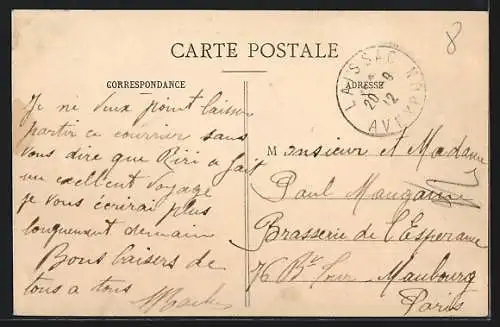 8
CARTE POSTALE
CORRESPONDANCE
ADRESSE
LAISSAC
20 - 9
12
AVEYRON
Je ne veux point laisser
partir ce courrier sans
vous dire que Riri a fait
un excellent voyage
je vous écrirai plus
longuement demain
Bons baisers de
tous a tous
Monsieur et Madame
Paul
Brasserie de l'Esperance
76 Bd Tour Maubourg
Paris